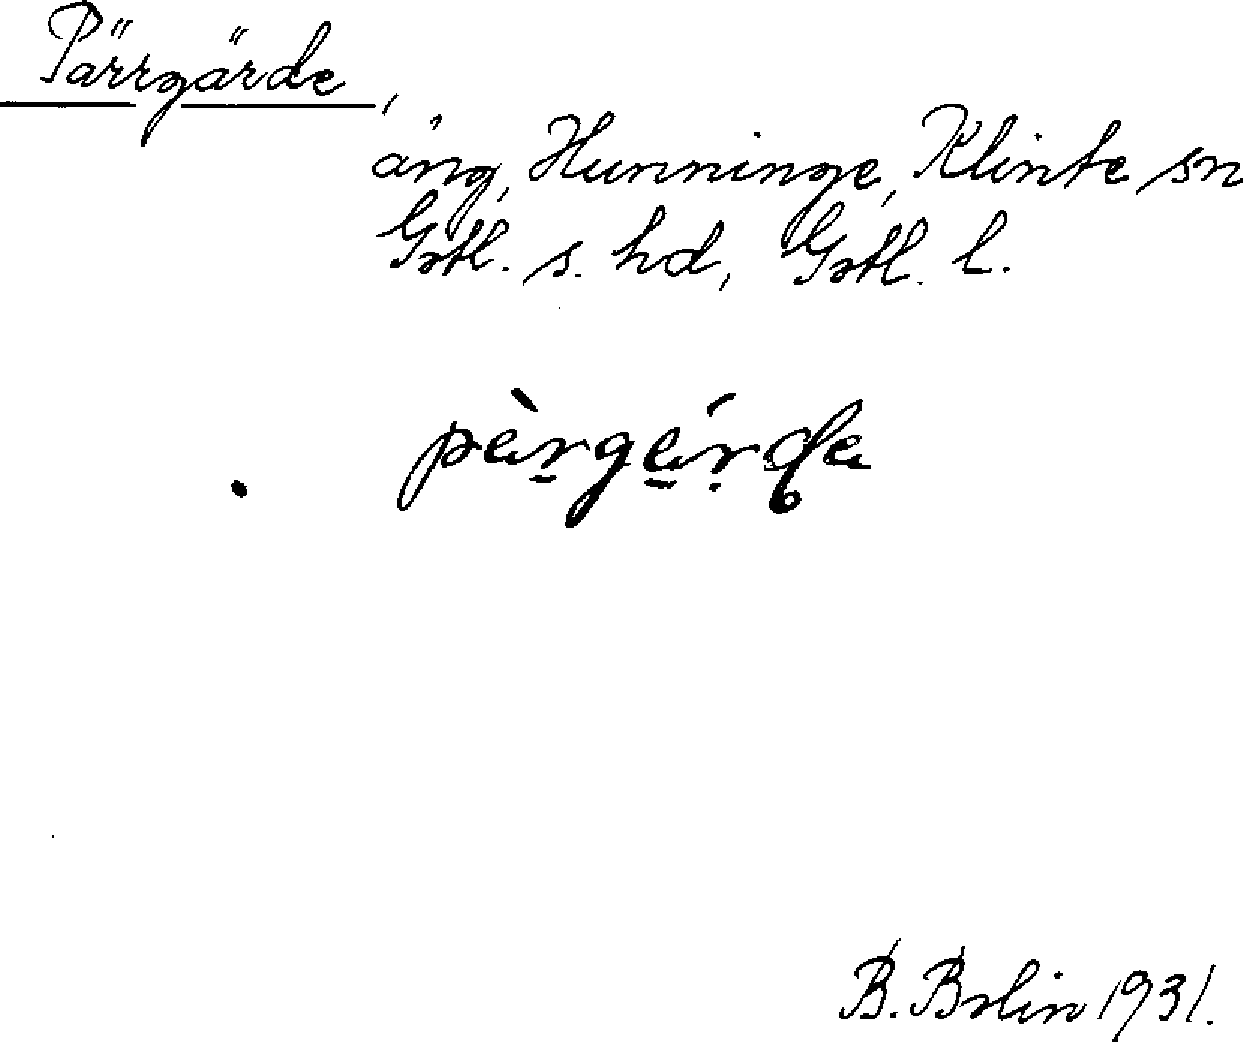 Pärrgärde,
äng, Hunninge, Klinte sn
Gotl. s. hd, Gotl. l.
pèrgérde
B. Bolin 1931.